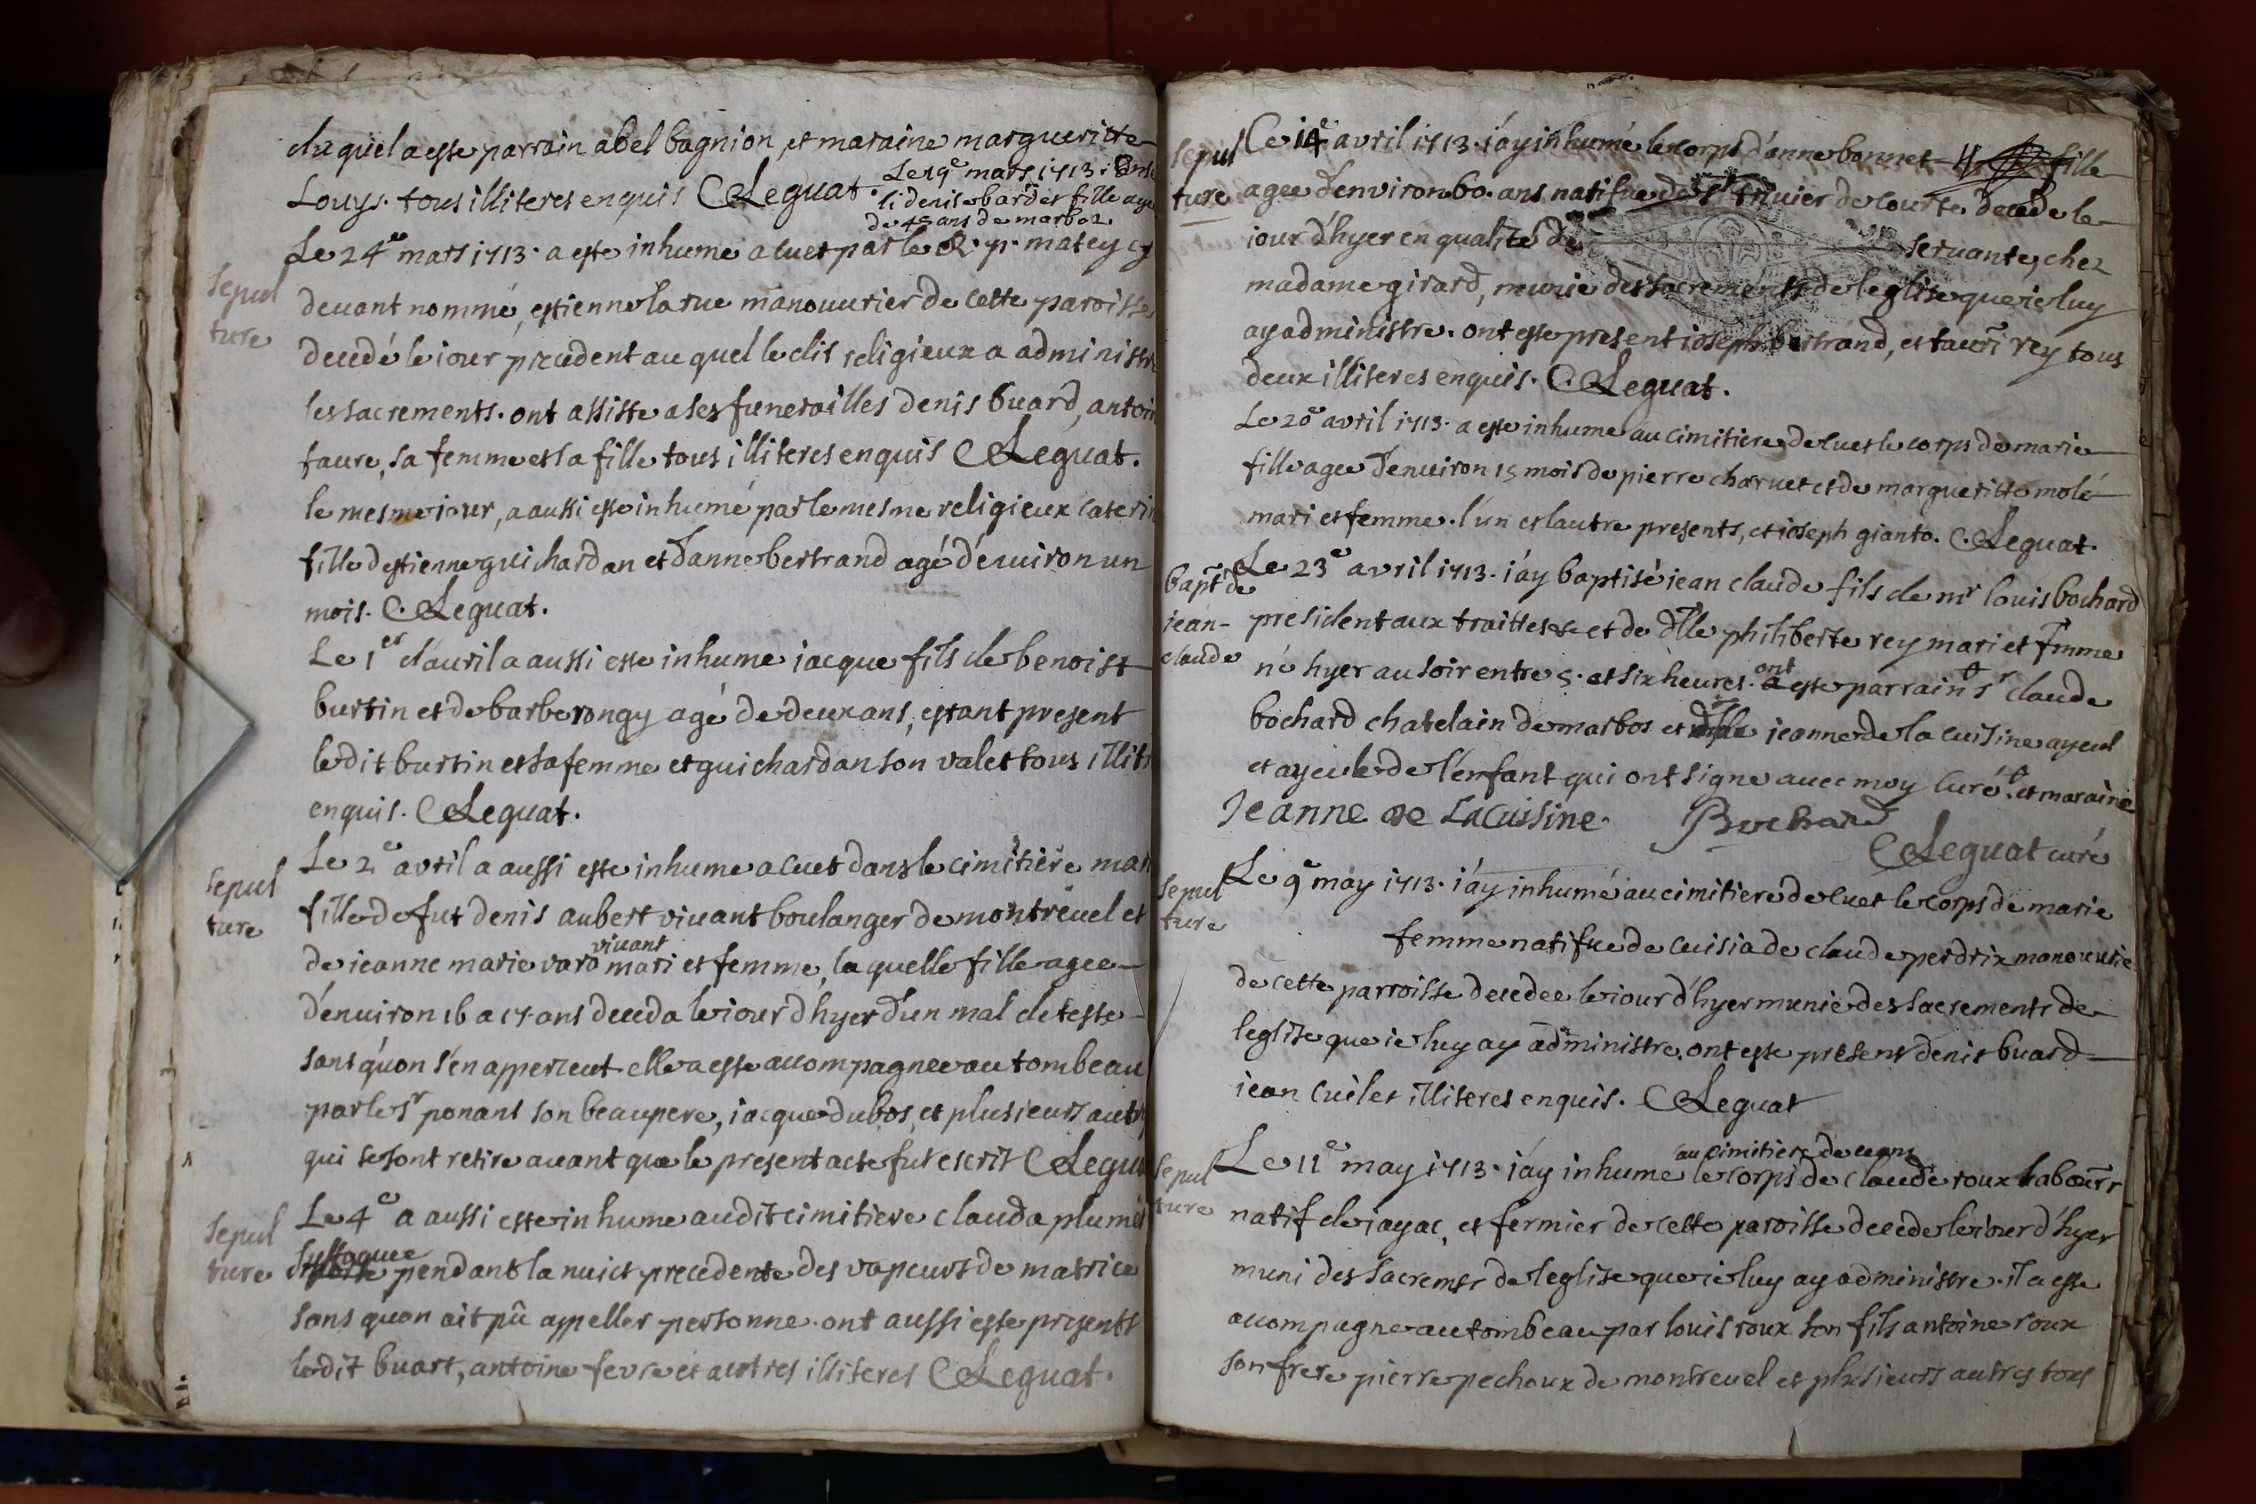 duquel a este parrain abel bagnion, et maraine margueritte
Louys. tous illiteres enquis C Leguat. Le 19e mars 1713.
li denise bardet fille agee
de 45 ans de marboz
sepul
ture
Le 24e mars 1713. a este inhume a cuet par le R. p. matey cy
devant nommé, estienne larue manouurier de cette paroisse
decedé le iour precedent auquel le dit religieux a administre
les sacrements. ont assiste a ses funerailles denis buard, antoin
faure, sa femme et sa fille tous illiteres enquis C Leguat.
le mesme iour, a aussi este inhumé par le mesme religieux caterin
fille d'estienne guichardan et d'anne bertrand agé d'enuiron un
mois. C. Leguat.
Le 1er d'auril a aussi este inhume iacque fils de benoist
burtin et de barbe rongy agé de deux ans, estant present
ledit burtin et sa femme et guichardan son valet tous illite
enquis. C Leguat.
sepul
ture
Le 2e avril a aussi este inhume a cuet dans le cimitière mari
fille de fut denis aubert viuant boulanger de montreuel et
de ieanne marie varo viuant mari et femme, laquelle fille agee
d'enuiron 16 a 17 ans deceda le iour d'hyer d'un mal de teste
sans qu'on s'en apperceut elle a este accompagnee au tombeau
par le sr ponans son beaupere, iacque dubos, et plusieurs autr
qui se sont retire auant que le present acte fut escrit C Legua
sepul
ture
Le 4e a aussi este inhume audit cimitiere clauda plumet
suffoquee pendant la nuict precedente des vapeurs de matrice
sans quon ait pû appeller personne. ont aussi este presents
ledit buart, antoine fevre et autres illiteres C Leguat.
sepul
ture
Le 14e avril 1713. i'ay inhumé le corps d'anne bonnet fille
agee d'environ 60. ans natifue de st triuier de courte decede le
iour d'hyer en qualité de servante, chez
madame girard, munie des sacrements de leglise que ie luy
ay administre. ont este present ioseph bertrand, et rey tous
deux illiteres enquis. C. Leguat.
Le 20e avril 1713. a este inhume au cimitiere de cuet le corps de marie
fille agee d'enuiron 15 mois de pierre charuet et de margueritte molé
mari et femme. l'un et lautre presents, et ioseph gianto. C. Leguat.
bapt de
iean-
claude
Le 23e avril 1713. i'ay baptisé iean claude fils de mr louis bochard
president aux traittes et de dlle philiberte rey mari et femme
né hyer au soir entre 5. et six heures. ont este parrain sr claude
bochard chatelain de marbos et dlle ieanne de la cuisine ayeul
et ayeule de l'enfant qui ont signe auec moy curé. et maraine
Jeanne de Lacuisine. Bochard
C Leguat curé
sepul
ture
Le 9e may 1713. i'ay inhumé au cimitiere de cuet le corps de marie
femme natifue de cuisia de claude perdrix manouurie
de cette parroisse decedee le iour d'hyer munie des sacrements de
leglise que ie luy ay administre. ont este present denis buard
iean cuilet illiteres enquis. C Leguat
sepul
ture
au cimitiere de ceans
Le 11e may 1713. i'ay inhume le corps de claude roux labourr
natif de iayac, et fermier de cette paroisse decede le iour d'hyer
muni des sacremts de leglise que ie luy ay administre. il a este
accompagne au tombeau par louis roux son fils antoine roux
son frere pierre pechoux de montreuel et plusieurs autres tous